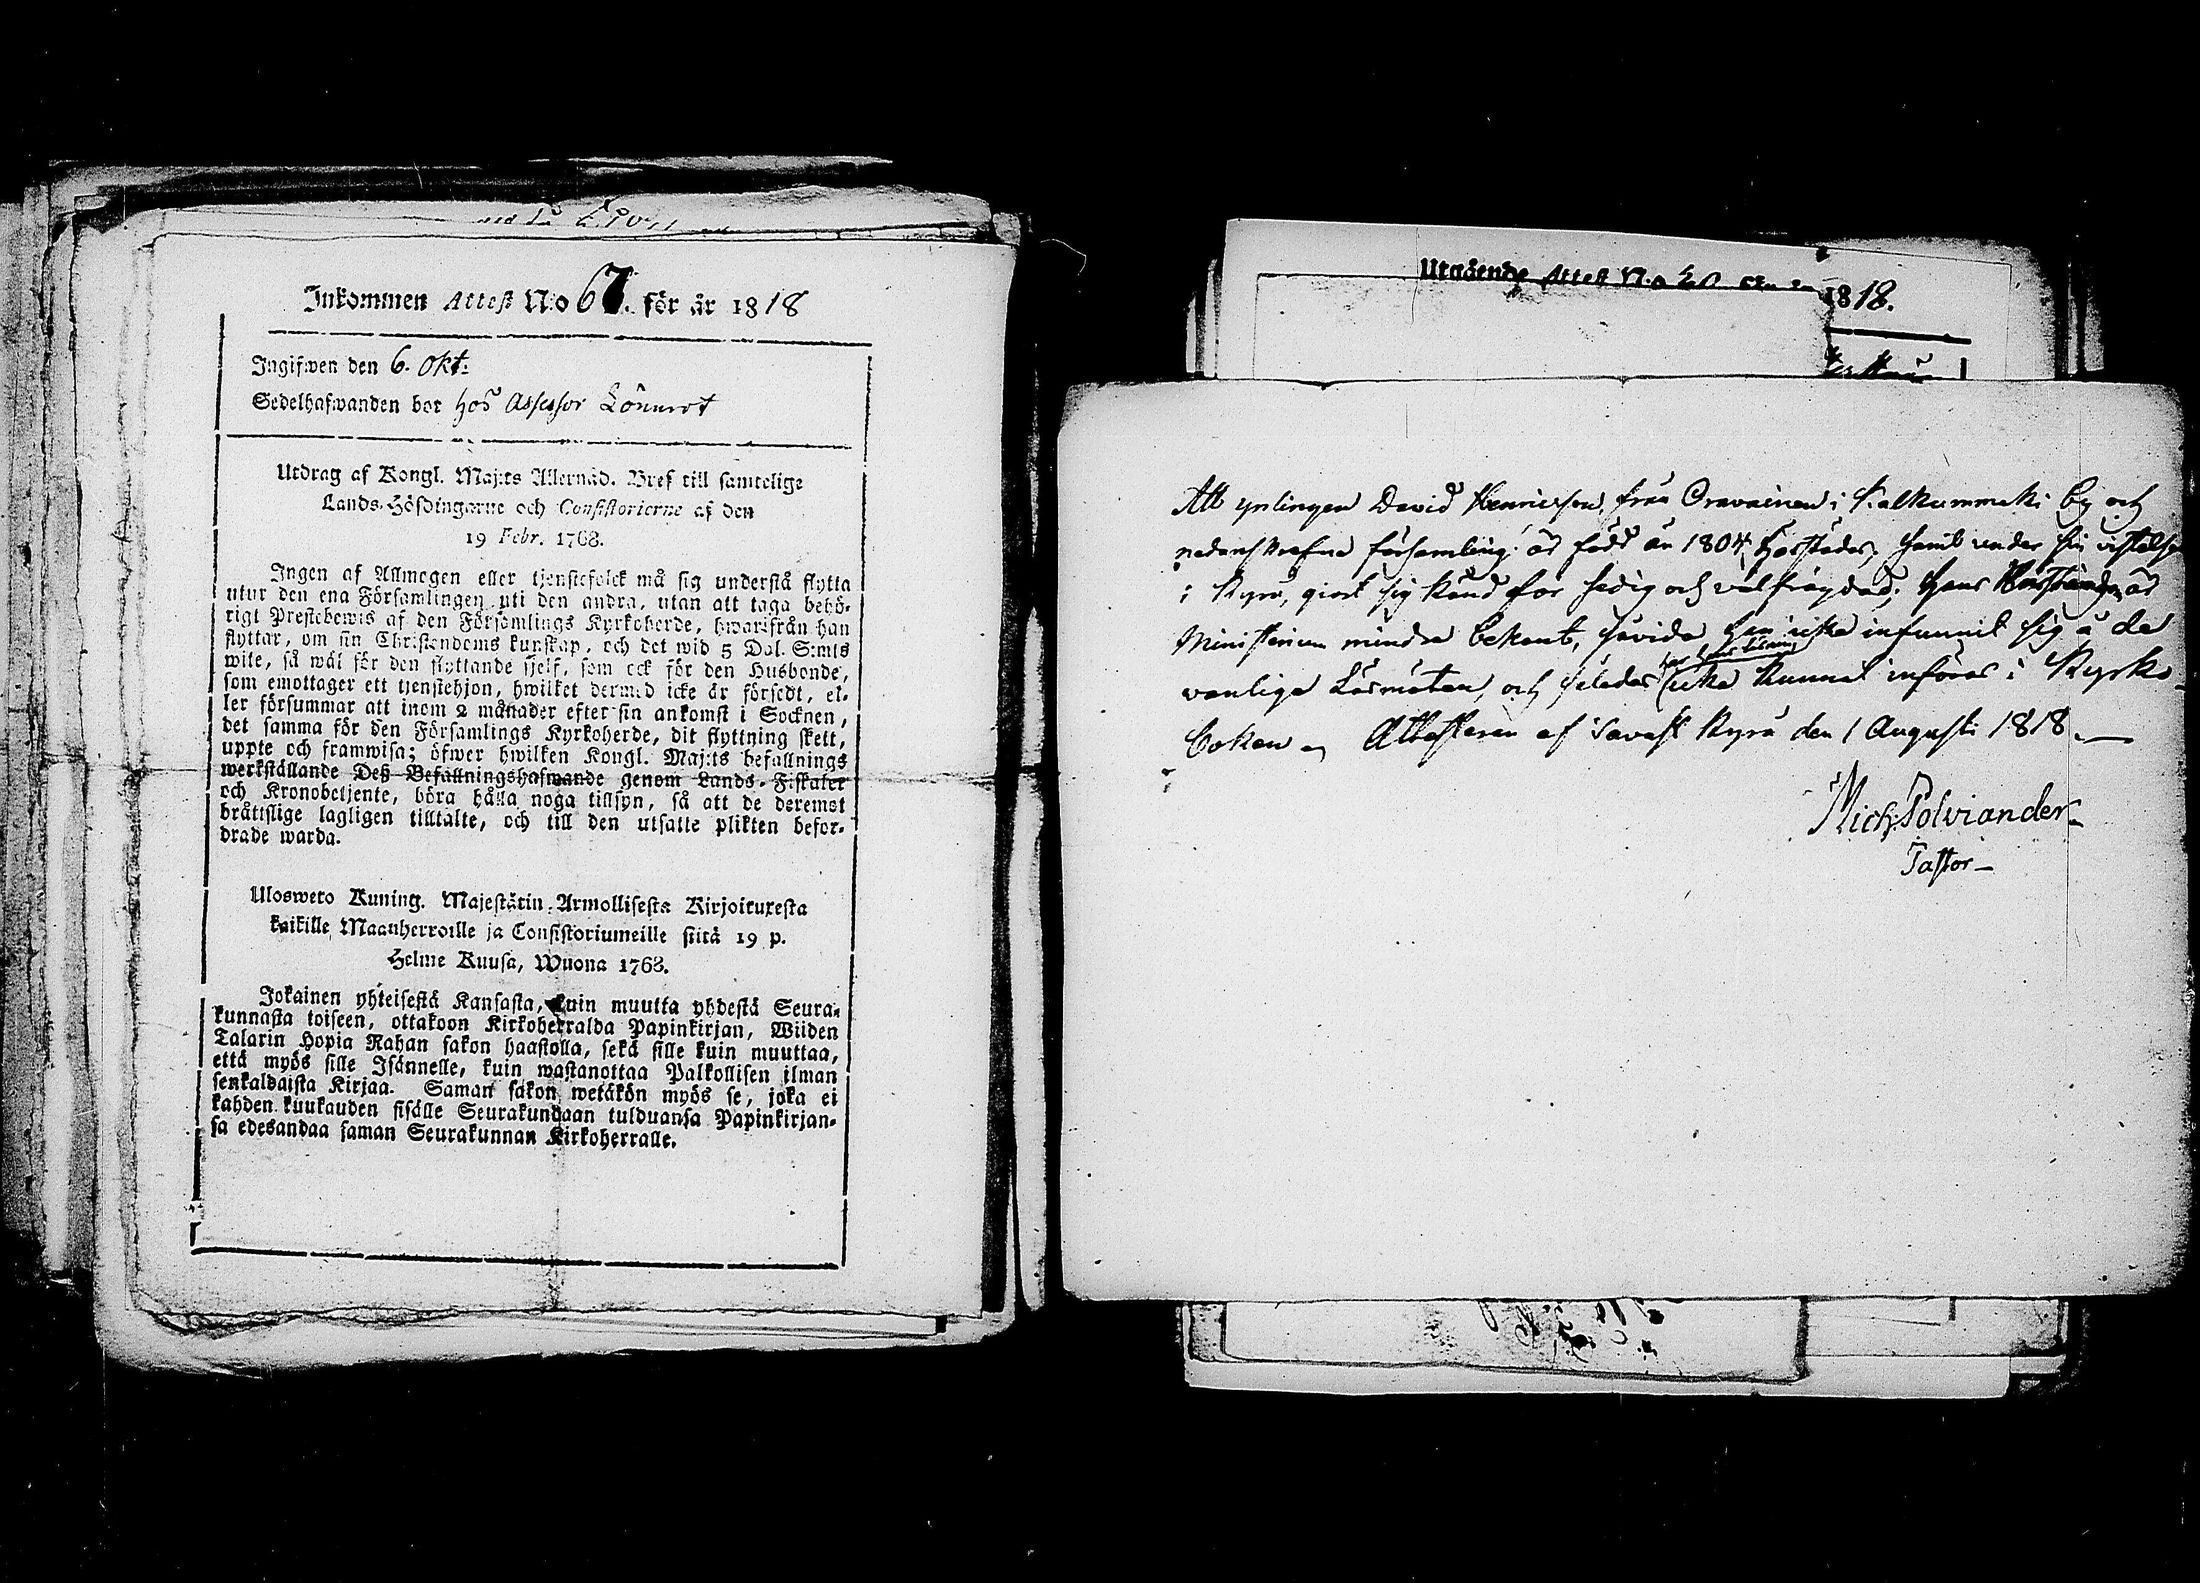 Inkommen Attest No 67. för år 1818
Ingifwen den 6. Okt:
Sedelhafwanden bor hos Assessor Lönnrot
Utdrag af Kongl. Maj:ts Allernåd. Bref till samtelige
Lands-Höfdingarne och Consistorierne af den
19 Febr. 1768.
Ingen af Allmogen eller tjenstefolck må sig understå flytta
utur den ena Församlingen uti den andra, utan att taga behö-
rigt Prestebewis af den Församlings Kyrkoherde, hwarifrån han
flyttar, om sin Christendoms kunskap, och det wid 5 Dal. S:mts
wite, så wäl för den flyttande sjelf, som ock för den Husbonde,
som emottager ett tjenstehjon, hwilket dermed icke är försedt, el-
ler försummar att inom 2 månader efter sin ankomst i Socknen,
det samma för den Församlings Kyrkoherde, dit flyttning skett,
uppte och framwisa; öfwer hwilken Kongl. Maj:ts befallnings
werkställande Deß Befallningshafwande genom Lands-Fiskaler
och Kronobetjente, böra hålla noga tillsyn, så att de deremot
bråttslige lagligen tilltalte, och till den utsatte plikten befor-
drade warda.
Ulosweto Kuning. Majestätin Armollisesta Kirjoituxesta
kaikille Maanherroille ja Consistoriumeille siitä 19 p.
Helme Kuusa, Wuona 1768.
Jokainen yhteisestä Kansasta, kuin muutta yhdestä Seura-
kunnasta toiseen, ottakoon Kirkoherralda Papinkirjan, Wiiden
Talarin Hopia Rahan sakon haastolla, sekä sille kuin muuttaa,
että myös sille Isännelle, kuin wastanottaa Palkollisen ilman
senkaldaista Kirjaa. Saman sakon wetäkön myös se, joka ei
kahden kuukauden sisälle Seurakundaan tulduansa Papinkirjan-
sa edesandaa saman Seurakunnan Kirkoherralle.
Utgående Attest No 1818.
Att ynlingen David Henricson från Oravainen i Kalkummaki by och
nedanskrefne församling är född år 1804 härstädes, samt under sin vistelse
i Kyro, giort sig känd för sedig och välfrägdad; hans är
Ministerium mindre bekant, såvida han icke infunnit sig å de
vanliga Läsmöten, och således icke kunnat införas i Kyrko-
boken Attesteras af Tavast Kyro den 1 Augusti 1818.
Mich. Polviander
Pastor